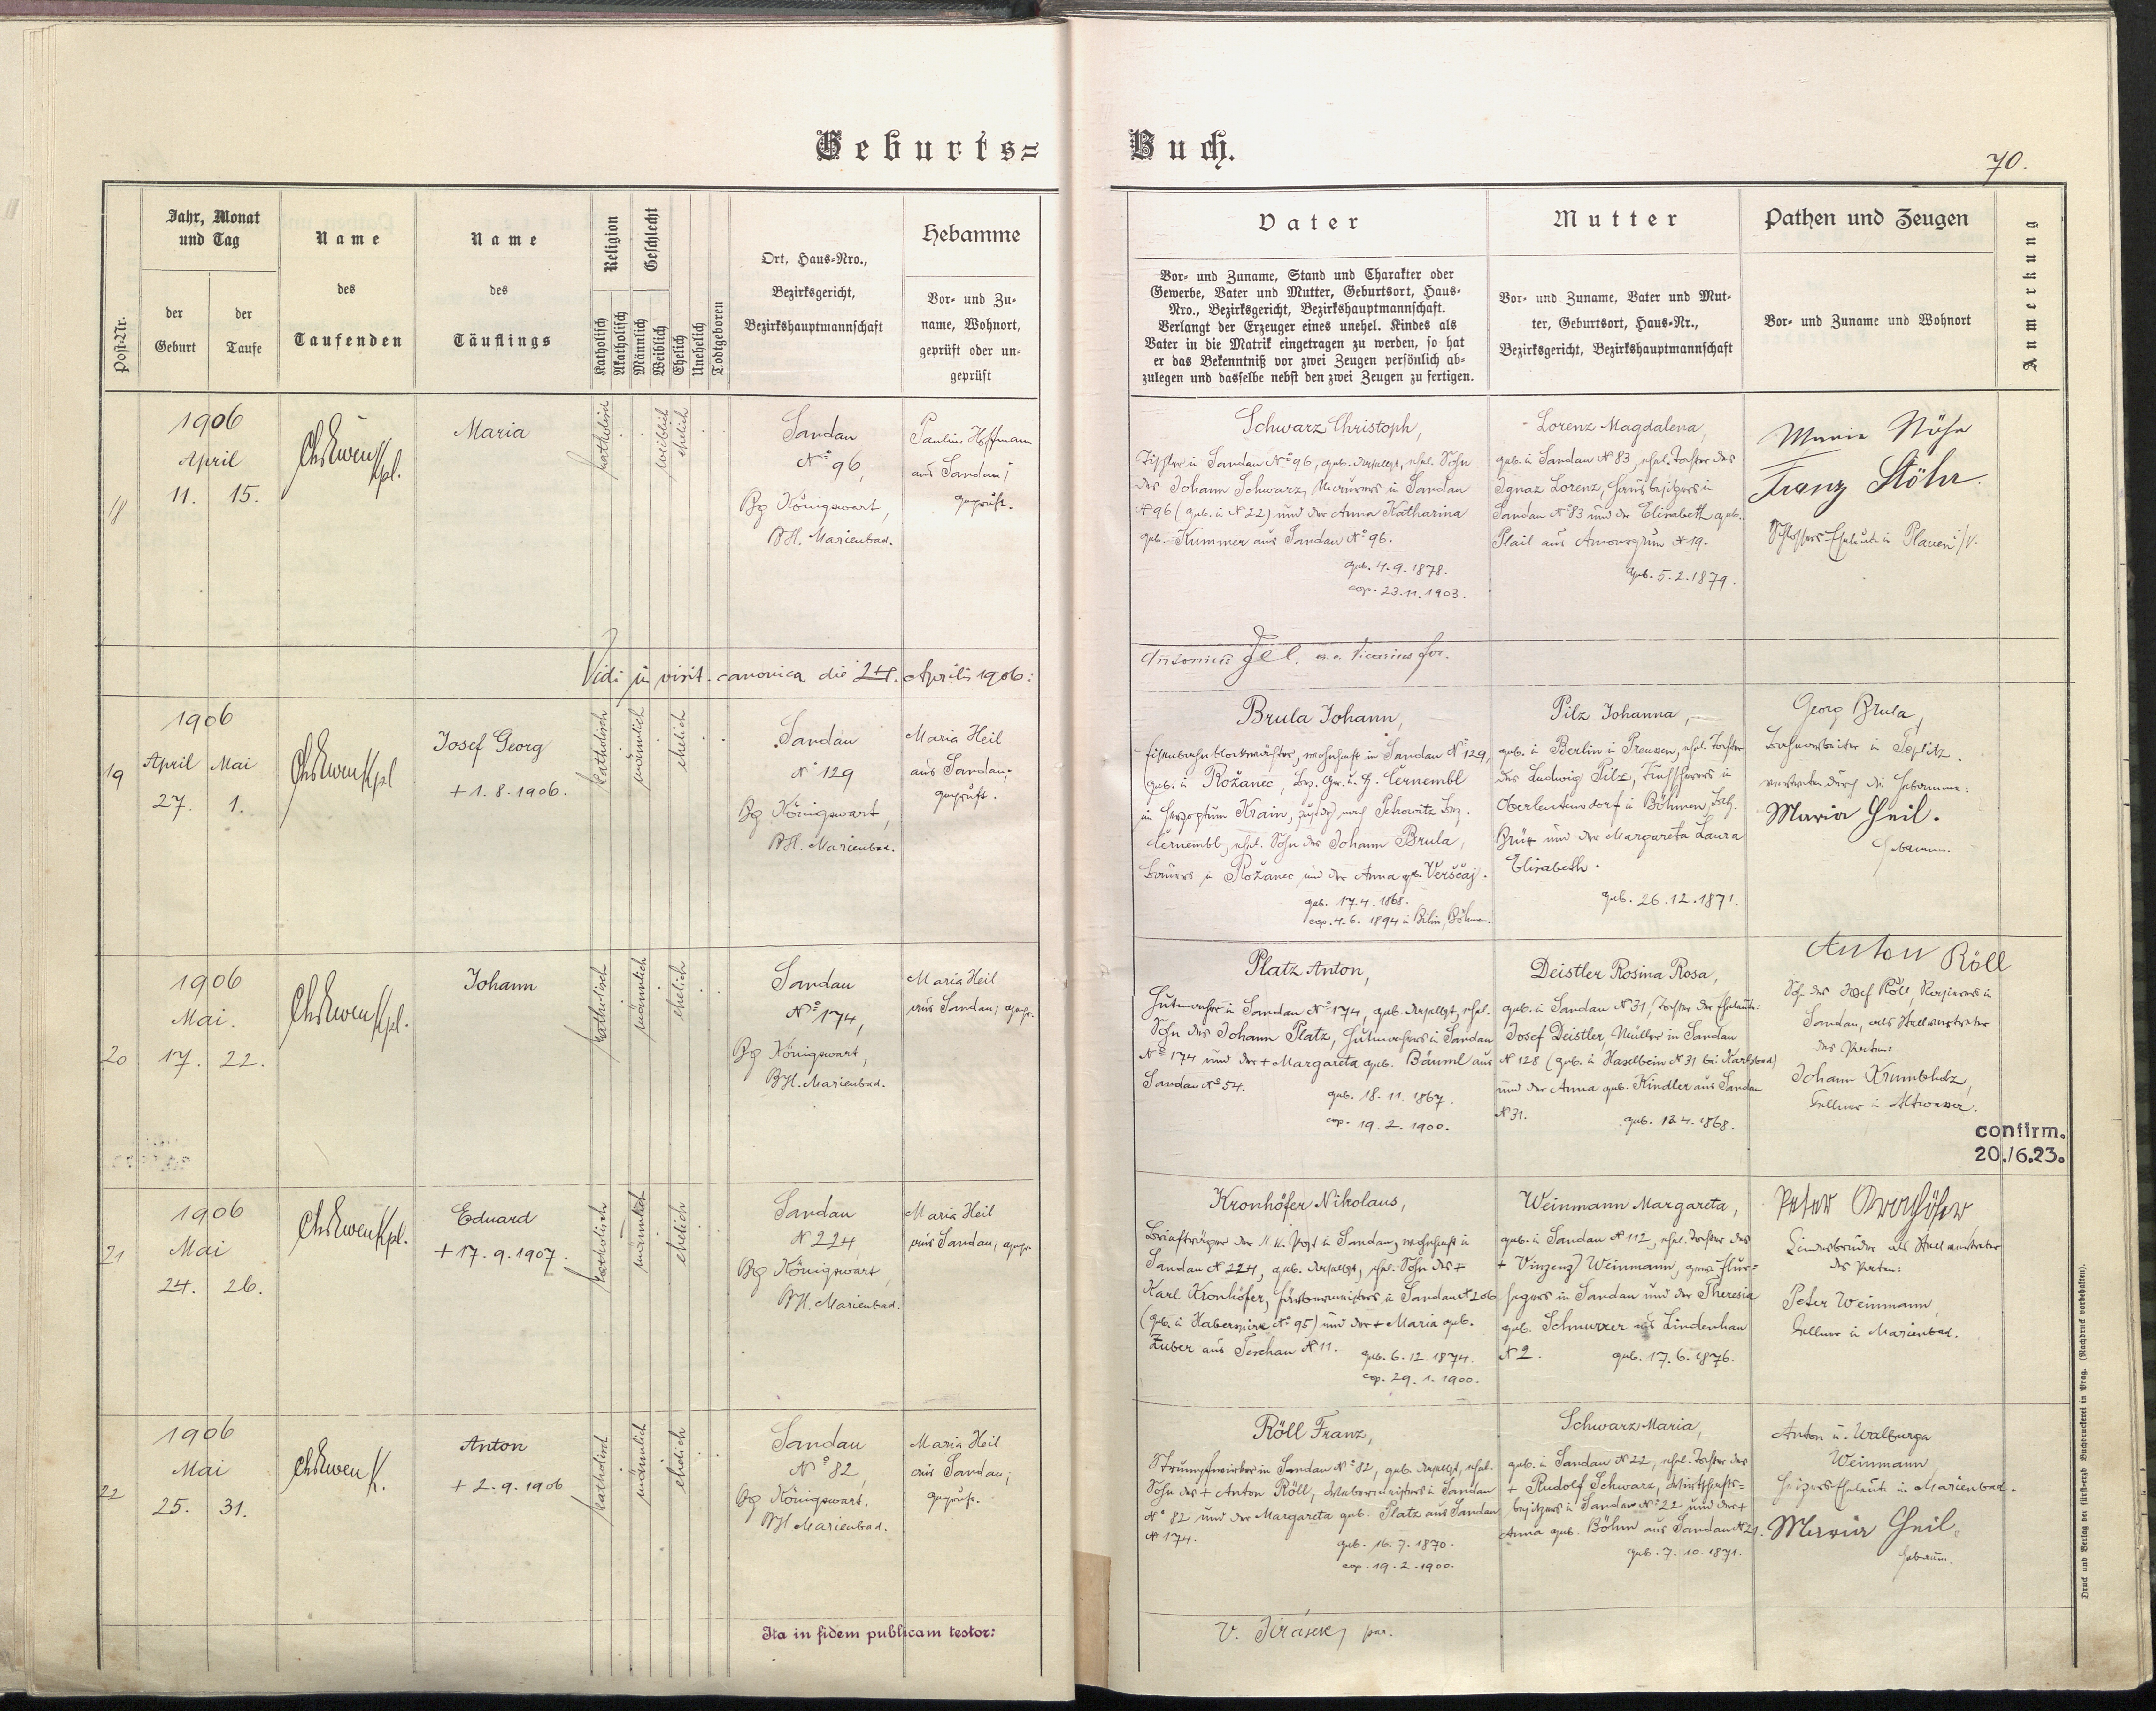 Geburts=
Buch.
70.
Post-Nr.
Jahr, Monat
und Tag
der
Geburt
der
Taufe
Name
des
Taufenden
Name
des
Täuflings
Religion
Katholisch
Akatholisch
Geschlecht
Männlich
Weiblich
Ehelich
Unehelich
Todtgeboren
Ort, Haus-Nro.,
Bezirksgericht,
Bezirkshauptmannschaft
Hebamme
Vor- und Zu-
name, Wohnort,
geprüft oder un-
geprüft
Vater
Vor- und Zuname, Stand und Charakter oder
Gewerbe, Vater und Mutter, Geburtsort, Haus-
Nro., Bezirksgericht, Bezirkshauptmannschaft.
Verlangt der Erzeuger eines unehel. Kindes als
Vater in die Matrik eingetragen zu werden, so hat
er das Bekenntniß vor zwei Zeugen persönlich ab-
zulegen und dasselbe nebst den zwei Zeugen zu fertigen.
Mutter
Vor- und Zuname, Vater und Mut-
ter, Geburtsort, Haus-Nr.,
Bezirksgericht, Bezirkshauptmannschaft
Pathen und Zeugen
Vor- und Zuname und Wohnort
Anmerkung
18
1906
April
11. 15.
Kpl.
Maria
katholisch
weiblich
ehelich
Sandau
No 96,
Bg Königswart,
BH. Marienbad.
Pauline Hoffmann
aus Sandau;
geprüft.
Schwarz Christoph,
Tischler in Sandau No 96, geb. daselbst, ehel. Sohn
des Johann Schwarz, Maurers in Sandau
No 96 (geb. in No 22) und der Anna Katharina
geb. Kummer aus Sandau No 96.
geb. 4.9.1878.
cop. 23.11.1903.
Lorenz Magdalena,
geb. in Sandau No 83, ehel. Tochter des
Ignaz Lorenz, Hausbesitzers in
Sandau No 83 und der Elisabeth geb.
Plail aus Amonsgrün No 19.
geb. 5.2.1879.
Marie Stöhr
Franz Stöhr.
Schlossers-Eheleute in Plauen i/V.
Vidi in visit. canonica die 24. Aprilis 1906:
Antonius Vicarius for.
19
1906
April Mai
27. 1.
Kpl
Josef Georg
+ 1.8.1906.
katholisch
männlich
ehelich
Sandau
No 129
Bg Königswart,
BH. Marienbad.
Maria Heil
aus Sandau;
geprüft.
Brula Johann,
Eisenbahnblockwächter, wohnhaft in Sandau No 129,
geb. in Rožanec, Bez. Gr. u. H. Černembl
im Herzogtum Krain, zust. nach Petrowitz Bez.
Černembl, ehel. Sohn des Johann Brula,
Bauers in Rožanec und der Anna geb. Verščaj.
geb. 17.4.1868.
cop. 4.6.1894 in Bilin, Böhmen.
Pilz Johanna,
geb. in Berlin in Preussen, ehel. Tochter
des Ludwig Pilz, in
Oberleutensdorf in Böhmen, Bez.
Brüx und der Margareta Laura
Elisabeth.
geb. 26.12.1871.
Georg Brula,
Bahnarbeiter in Teplitz.
vertreten durch die Hebamme:
Maria Heil.
Hebamm.
20
1906
Mai.
17. 22.
Kpl.
Johann
katholisch
männlich
ehelich
Sandau
No 174,
Bg Königswart,
BH. Marienbad.
Maria Heil
aus Sandau; gepr.
Platz Anton,
Hutmacher in Sandau No 174, geb. daselbst, ehel.
Sohn des Johann Platz, Hutmachers in Sandau
No 174 und der + Margareta geb. Bäuml aus
Sandau No 54.
geb. 18.11.1867.
cop. 19.2.1900.
Deistler Rosina Rosa,
geb. in Sandau No 31, Tochter der Eheleute:
Josef Deistler, Müller in Sandau
No 128 (geb. in Haselbein No 31 bei Karlsbad)
und der Anna geb. Kindler aus Sandau
No 31.
geb. 13.4.1868.
Anton Röll
Sohn des Josef Röll, in
Sandau, als Stellvertreter
des Paten:
Johann Krumbholz,
Kellner in Altwasser.
confirm.
20./6.23.
21
1906
Mai
24. 26.
Kpl.
Eduard
+ 17.9.1907.
katholisch
männlich
ehelich
Sandau
No 224
Bg Königswart,
BH. Marienbad.
Maria Heil
aus Sandau; gepr.
Kronhöfer Nikolaus,
Briefträger der k. k. Post in Sandau, wohnhaft in
Sandau No 224, geb. daselbst, ehel. Sohn des +
Karl Kronhöfer, Färbermeisters in Sandau No 206
(geb. in Haberspirk No 95) und der + Maria geb.
Zuber aus Teschau No 11.
geb. 6.12.1874.
cop. 29.1.1900.
Weinmann Margareta,
geb. in Sandau No 112, ehel. Tochter des
+ Vinzenz Weinmann, gew. Flur=
hegers in Sandau und der Theresia
geb. Schnurrer aus Lindenhau
No 2.
geb. 17.6.1876.
Peter Kronhöfer
Kindesbruder als Stellvertreter
des Paten:
Peter Weinmann,
Kellner in Marienbad.
22
1906
Mai
25. 31.
K.
Anton
+ 2.9.1906
katholisch
männlich
ehelich
Sandau
No 82
Bg Königswart.
BH. Marienbad.
Maria Heil
aus Sandau;
geprüft.
Röll Franz,
Strumpfwirker in Sandau No 82, geb. daselbst, ehel.
Sohn des + Anton Röll, Webermeisters in Sandau
No 82 und der Margareta geb. Platz aus Sandau
No 174.
geb. 16.7.1870.
cop. 19.2.1900.
Schwarz Maria,
geb. in Sandau No 22, ehel. Tochter des
+ Rudolf Schwarz, Wirtschafts=
besitzers in Sandau No 22 und der +
Anna geb. Böhm aus Sandau No 21.
geb. 7.10.1871.
Anton u. Walburga
Weinmann,
Heizers-Eheleute in Marienbad.
Maria Heil,
Hebamm.
Ita in fidem publicam testor:
V. Jirásek, par.
Druck und Verlag der fürsterzb. Buchdruckerei in Prag. (Nachdruck vorbehalten).